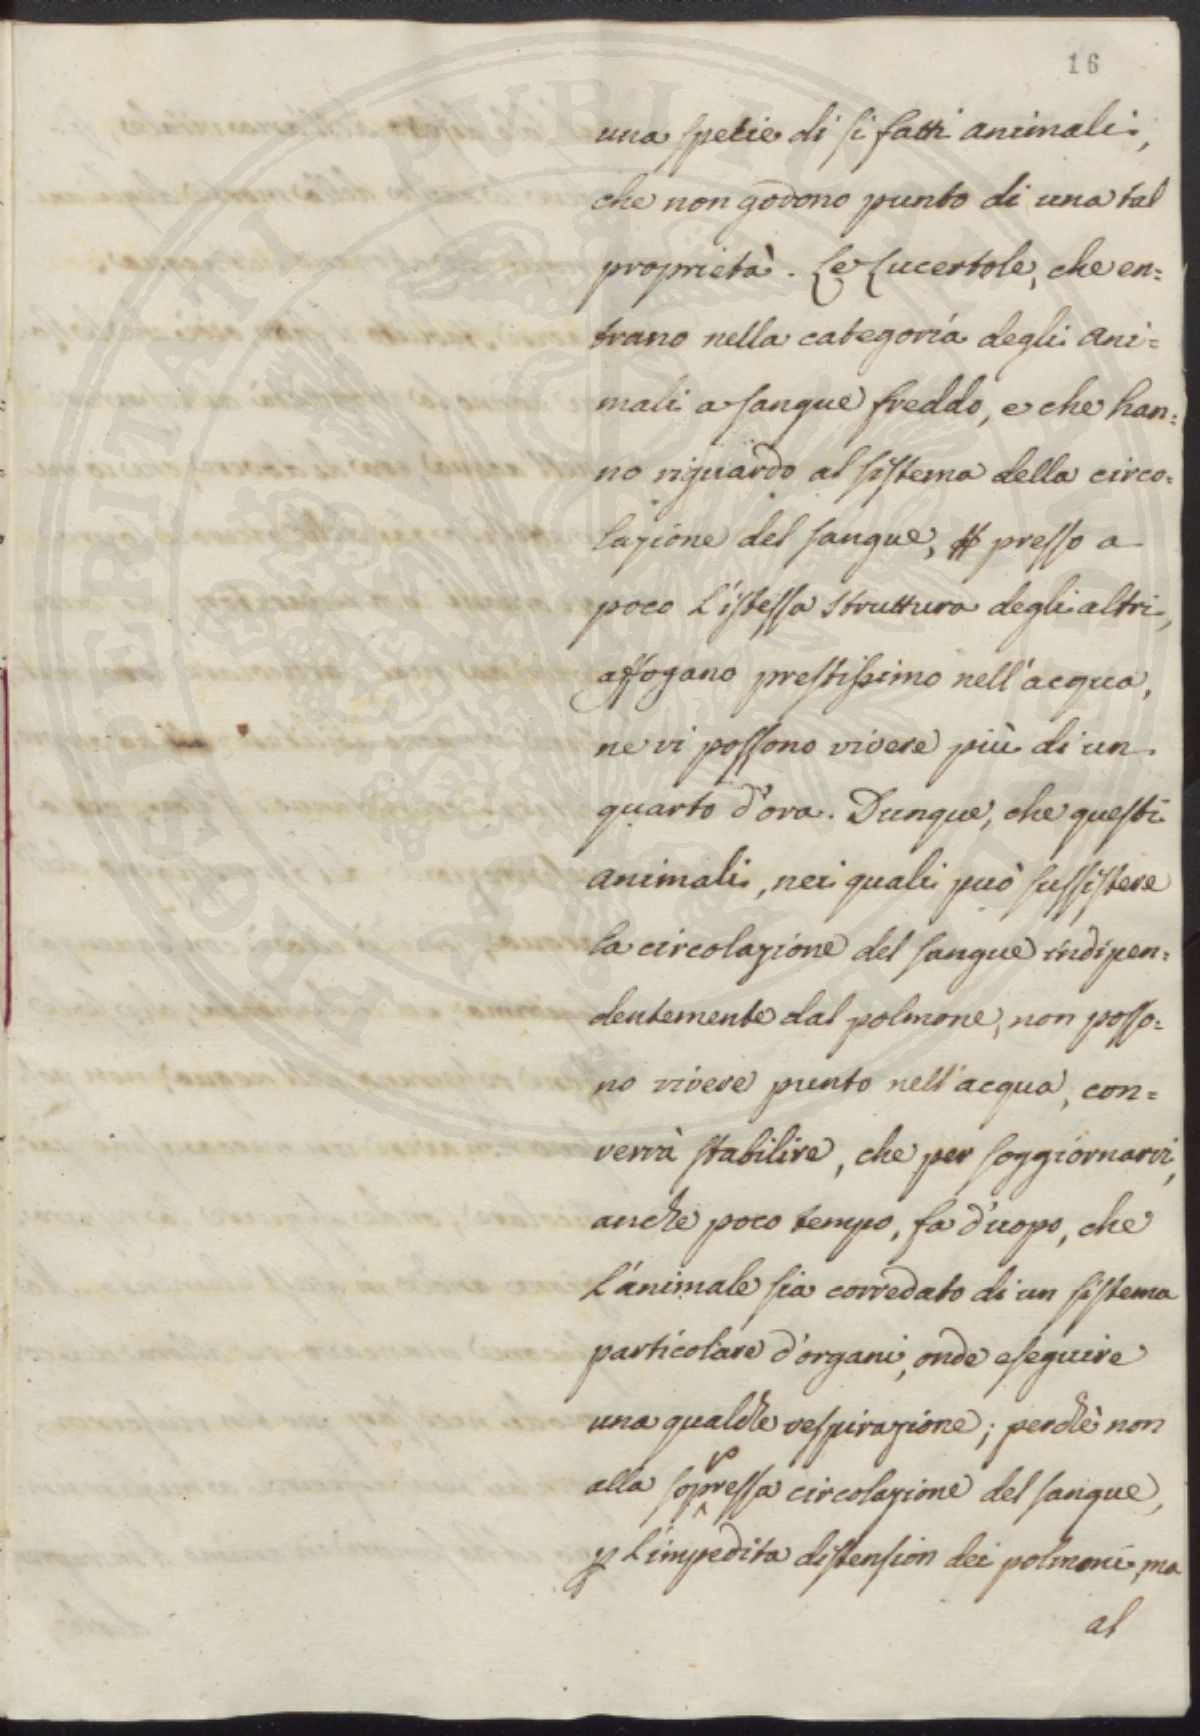 16
una spetie di si fatti animali,
che non godono punto di una tal
proprietà. Le Lucertole, che en=
trano nella categoría degli ani=
mali a sangue freddo, e che han=
no riguardo al sistema della circo=
lazione del sangue, presso a
poco l'istessa struttura degli altri,
affogano prestissimo nell'acqua,
ne vi possono vivere più di un
quarto d'ora. Dunque, che questi
animali, nei quali può sussistere
la circolazione del sangue indipen=
dentemente dal polmone, non posso=
no vivere punto nell'acqua, con=
verrà stabilire, che per soggiornarvi,
anche poco tempo, fa d'uopo, che
l'animale sia corredato di un sistema
particolare d'organi, onde eseguire
una qualche respirazione; perchè non
alla soppressa circolazione del sangue,
p l'impedita distension dei polmoni, ma
al
POSTERITATI PUBLICAE